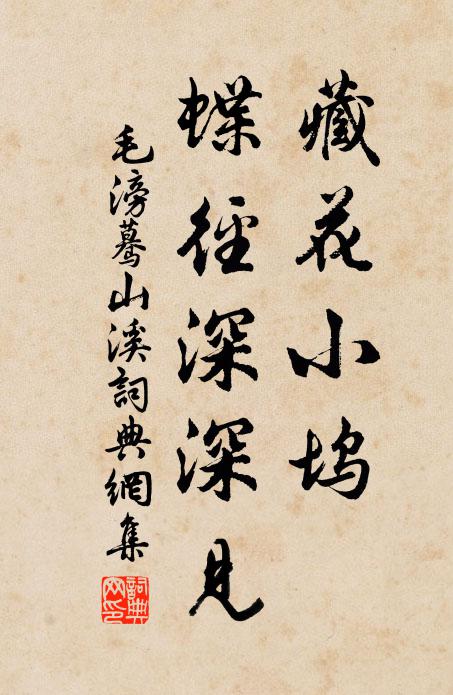 藏花小坞
蝶徑深深見
毛滂驀山溪詞典網集
詞典网印